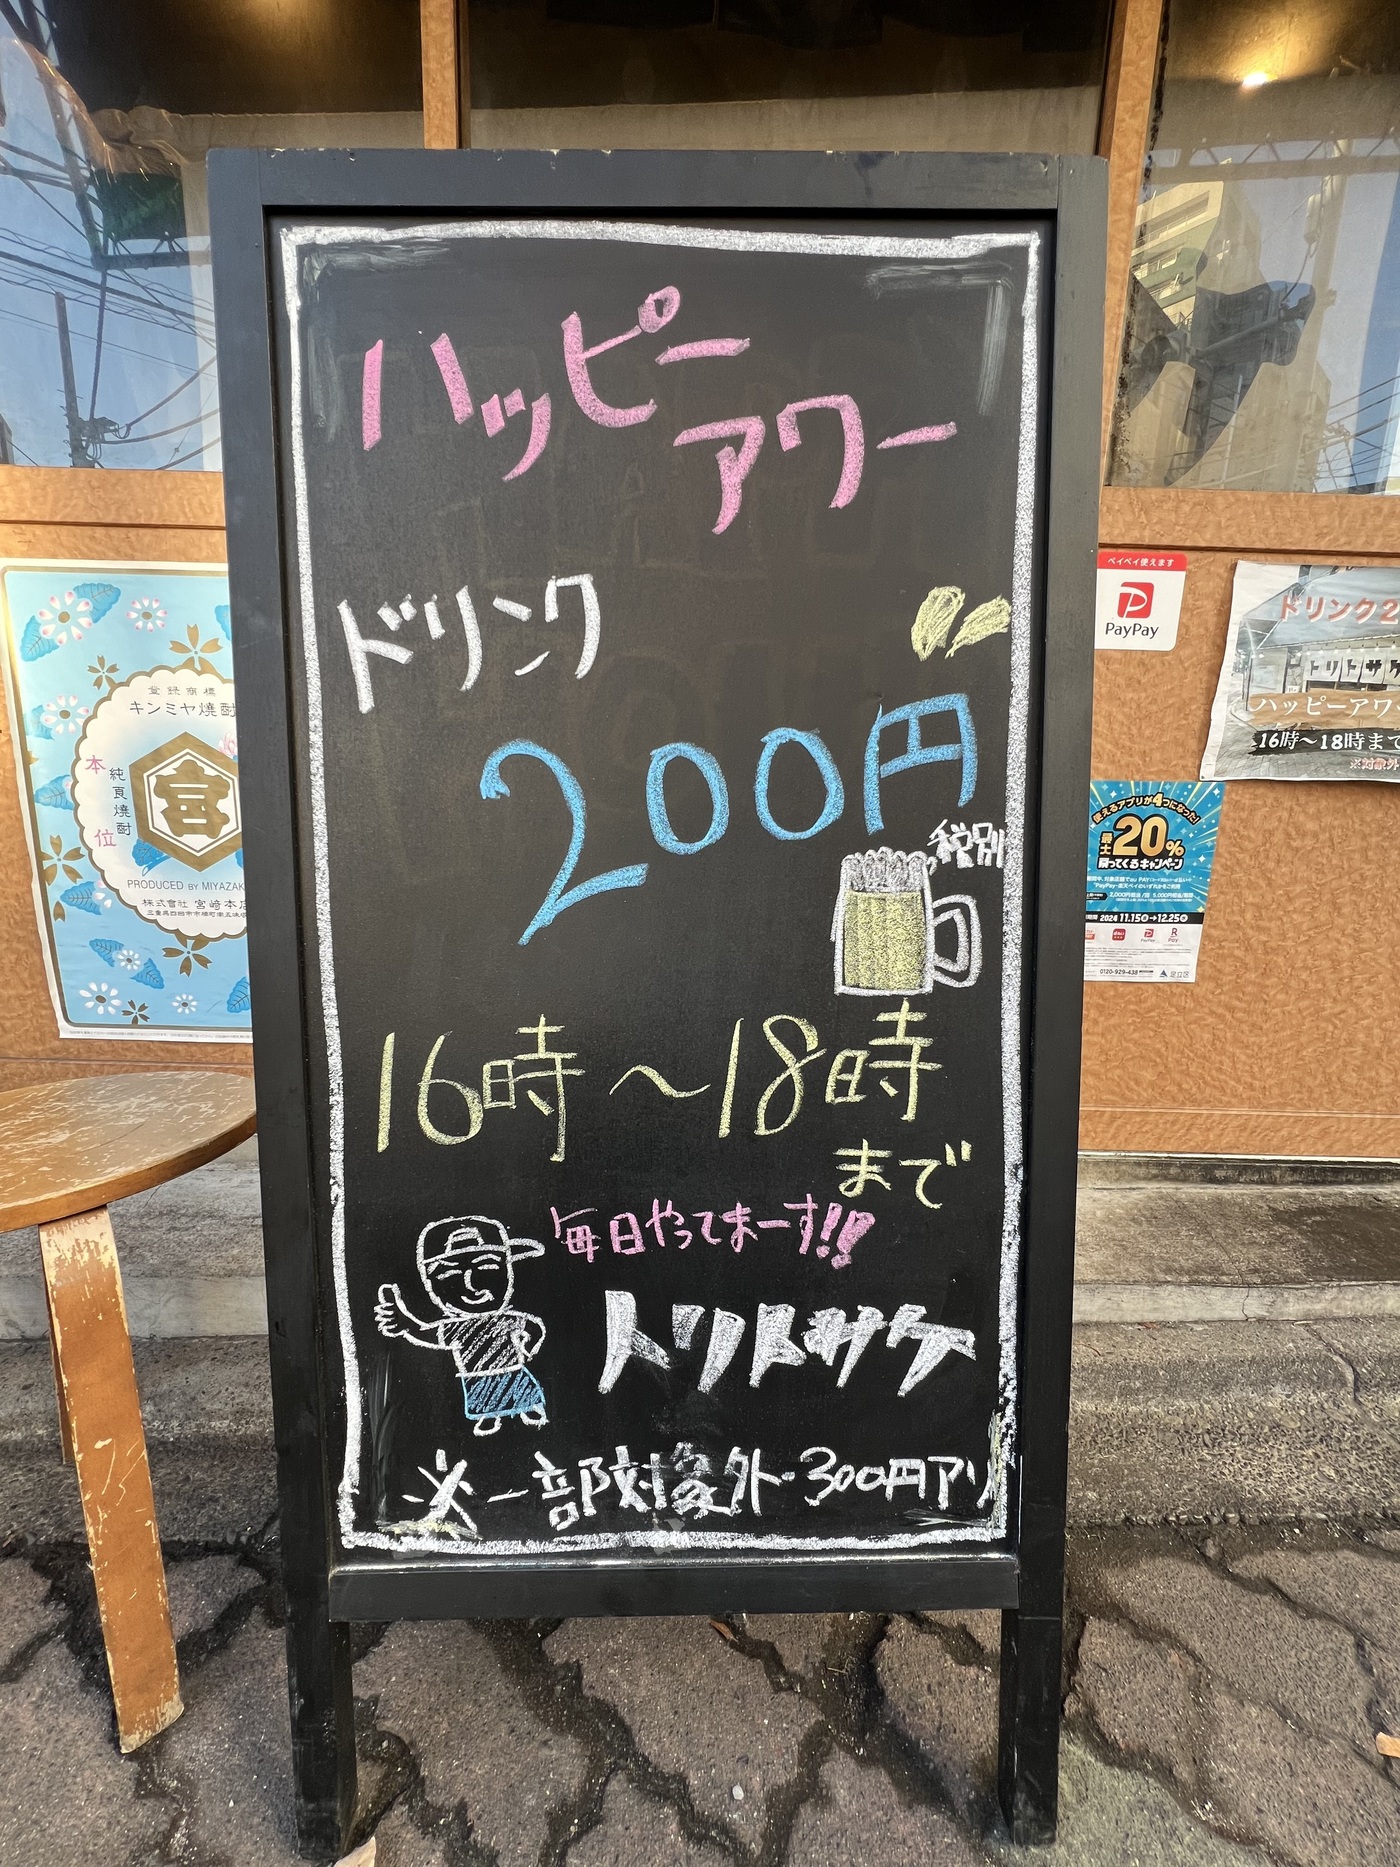 ハッピー
アワー
ドリンク
200円
税別
16時〜18時
まで
毎日やってまーす!!
トリトサケ
※一部対象外・300円アリ
登録商標
キンミヤ焼酎
本位
純良焼酎
宮
PRODUCED BY MIYAZAK
株式會社 宮﨑本店
ペイペイ使えます
PayPay
ドリンク2
トリトサケ
ハッピーアワ
16時〜18時まで
※対象外
使えるアプリが4つになった!
最大20%
戻ってくるキャンペーン
2024 11.15金→12.25水
PayPay
R Pay
0120-929-438